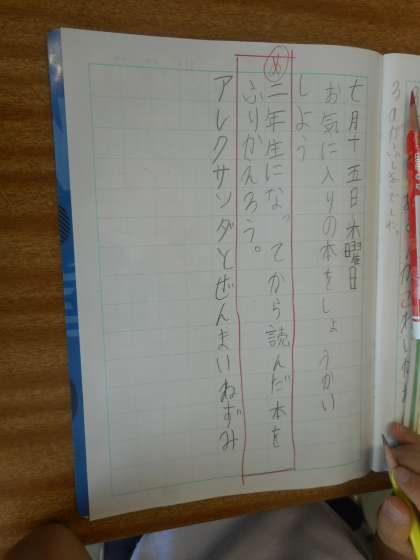 七月十五日水曜日
お気に入りの本をしょうかい
しよう
め
二年生になってから読んだ本を
ふりかえろう。
アレクサンダとぜんまいねずみ